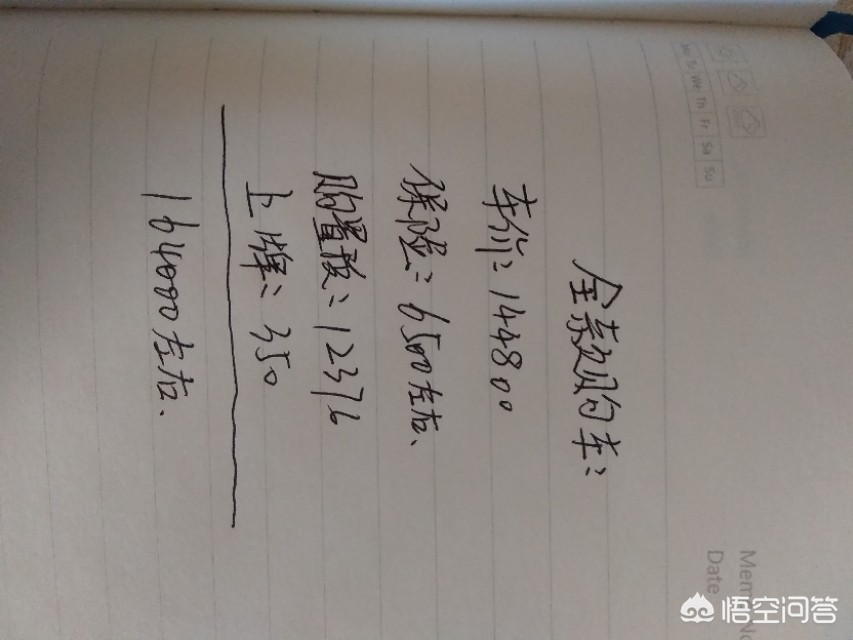 全款购车:
车价: 144800
保险: 6500左右、
购置税: 12376
上牌: 350
164000左右、
Mo Tu We Th Fr Sa Su
Date
悟空问答